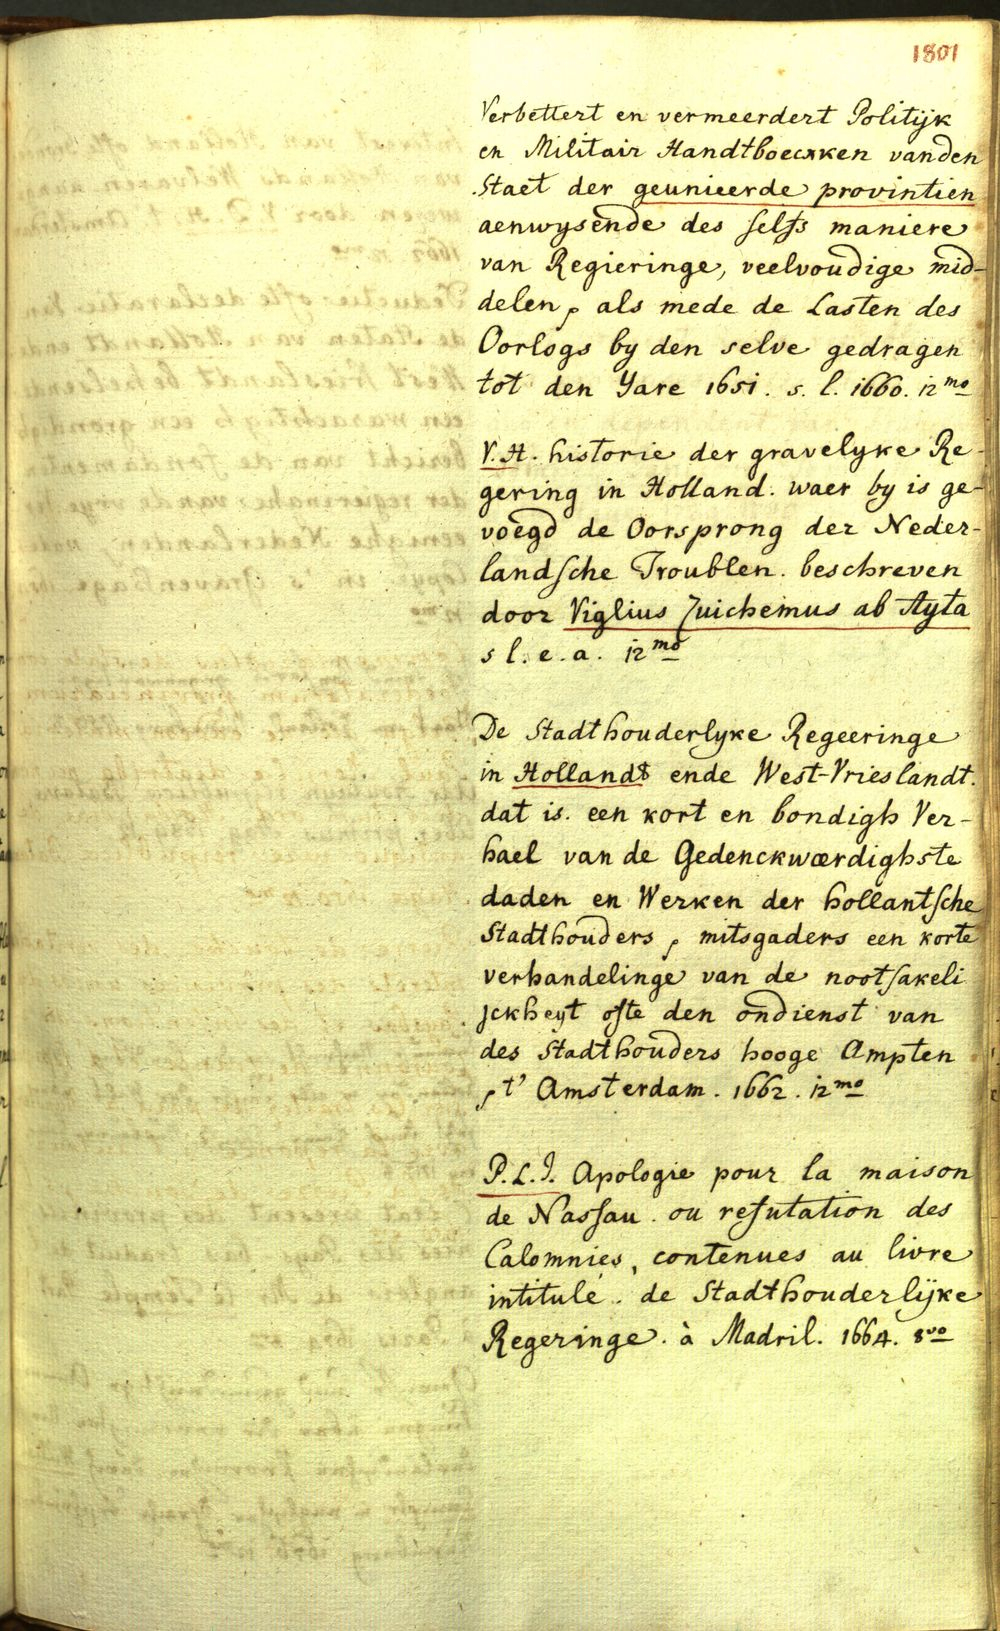 1801
Verbettert en vermeerdert Politijk
en Militair Handtboecxken vanden
Staet der geunieerde provintien
aenwysende des selfs maniere
van Regieringe, veelvoudige mid-
delen, als mede de Lasten des
Oorlogs by den selve gedragen
tot den Yare 1651. s. l. 1660. 12mo
V.H. historie der gravelyke Re-
gering in Holland. waer by is ge-
voegd de Oorsprong der Neder-
landsche Troublen. beschreven
door Viglius Zuichemus ab Ayta
s l. e. a. 12mo
De Stadthouderlyke Regeeringe
in Hollandt ende West-Vrieslandt.
dat is. een kort en bondigh Ver-
hael van de Gedenckwærdighste
daden en Werken der hollantsche
Stadthouders, mitsgaders een korte
verhandelinge van de nootsakeli
jckheyt ofte den ondienst van
des Stadthouders hooge Ampten
, t' Amsterdam. 1662. 12mo
P.L.J. Apologie pour la maison
de Nassau. ou refutation des
Calomnies, contenues au livre
intitulé. de Stadthouderlijke
Regeringe. à Madril. 1664. 8vo